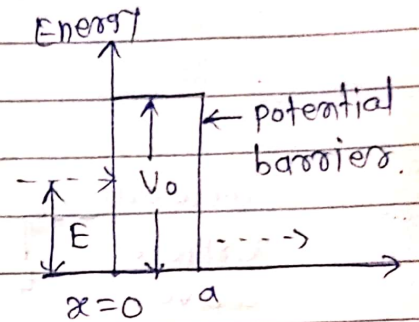 Energy
potential
barrier.
V₀
E
x=0
a